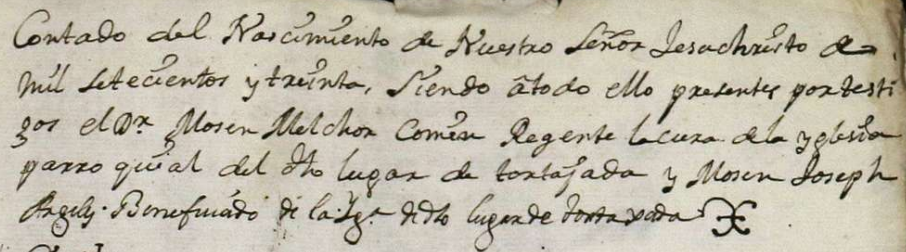 Contado del Nascimiento de Nuestro Señor Jesuchristo de
mil setecientos y treinta, siendo átodo ello presentes por testi
gos el Dr. Mosen Melchor Comín Regente la cura de la yglesia
parroquial del dho lugar de tortajada y Mosen Joseph
Argelis Beneficiado de la Ygª de dho lugar de tortaxada